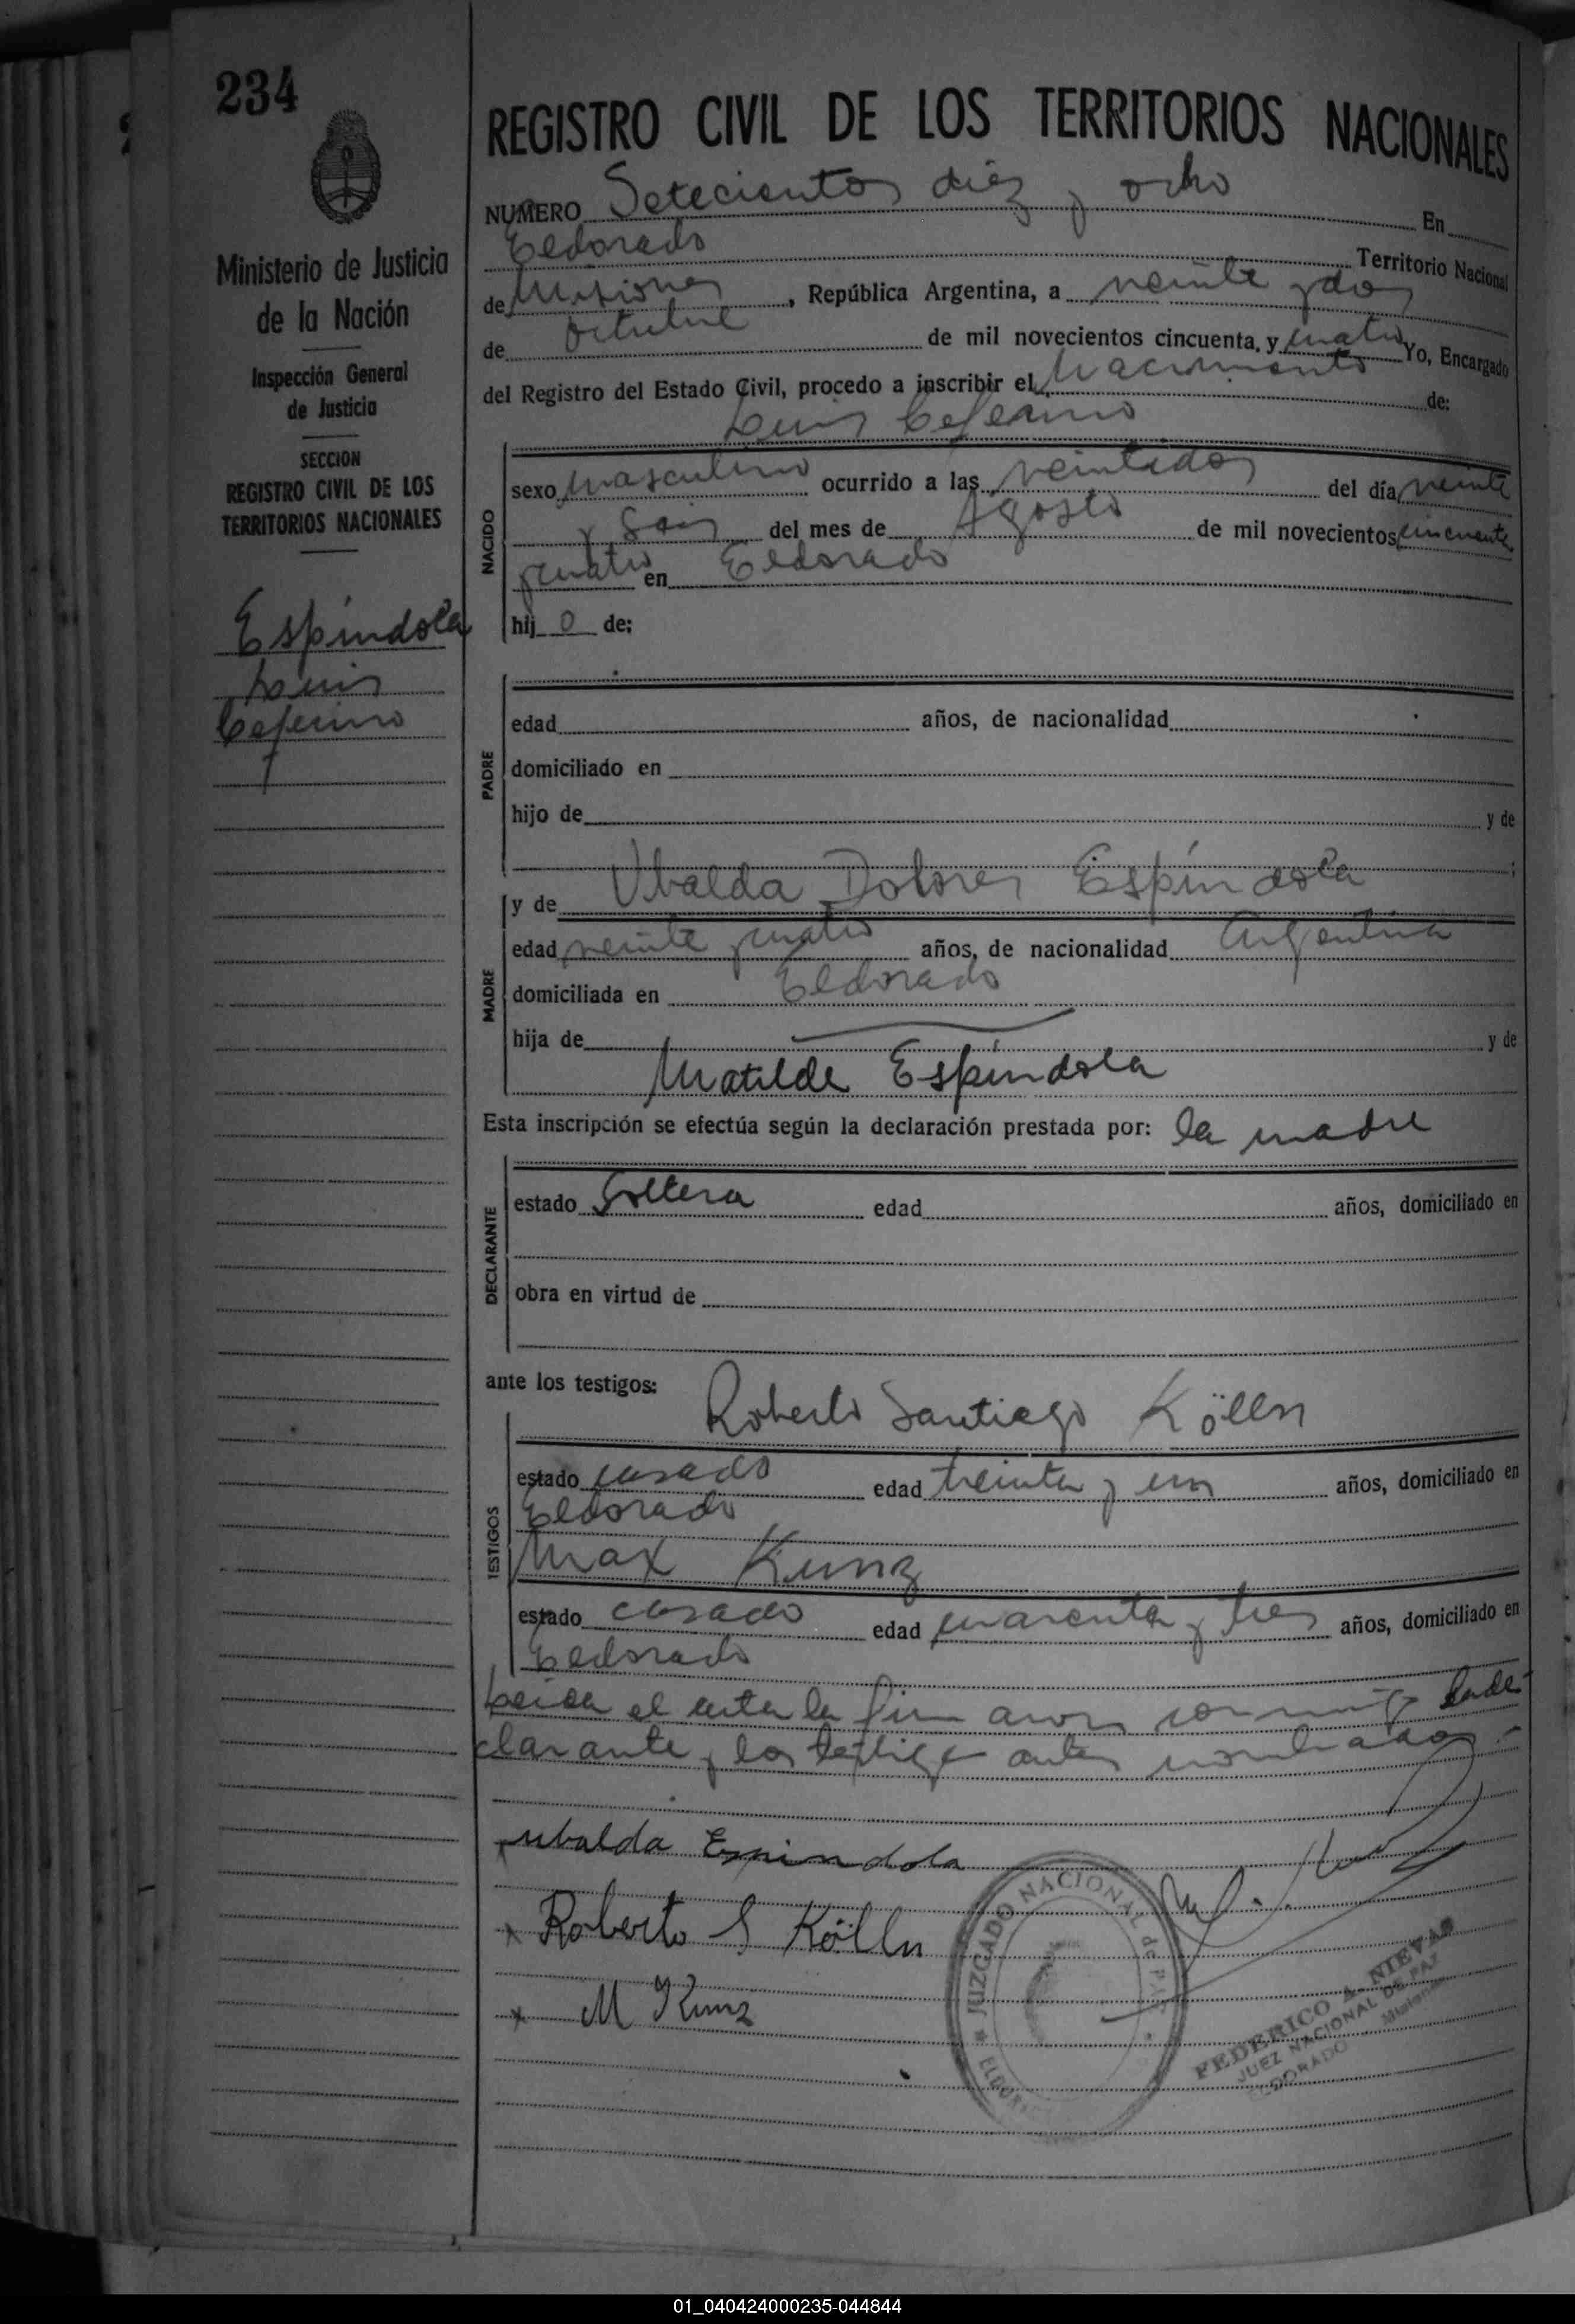 234
Ministerio de Justicia
de la Nación
Inspección General
de Justicia
SECCION
REGISTRO CIVIL DE LOS
TERRITORIOS NACIONALES
Espíndola
Luis
Ceferino
REGISTRO CIVIL DE LOS TERRITORIOS NACIONALES
NUMERO Setecientos diez y ocho En
Eldorado Territorio Nacional
de Misiones, República Argentina, a veinte y dos
de Octubre de mil novecientos cincuenta, y cuatro Yo, Encargado
del Registro del Estado Civil, procedo a inscribir el Nacimiento de:
Luis Ceferino
NACIDO
sexo masculino ocurrido a las veintidos del día veinte
y Seis del mes de Agosto de mil novecientos cincuenta
y cuatro en Eldorado
hij o de:
PADRE
edad años, de nacionalidad
domiciliado en
hijo de y de
MADRE
y de Ubalda Dolores Espíndola
edad veinte y cuatro años, de nacionalidad Argentina
domiciliada en Eldorado
hija de y de
Matilde Espíndola
Esta inscripción se efectúa según la declaración prestada por: la madre
DECLARANTE
estado Soltera edad años, domiciliado en
obra en virtud de
ante los testigos:
TESTIGOS
Roberto Santiago Kölln
estado casado edad treinta y un años, domiciliado en
Eldorado
Max Kunz
estado casado edad cuarenta y tres años, domiciliado en
Eldorado
Leida el acta la firmaron conmigo la de-
clarante y los testigos antes nombrados.-
ubalda Espindola
x Roberto S Kölln
x M Kunz
JUZGADO NACIONAL de PAZ
ELDORADO
FEDERICO A. NIEVAS
JUEZ NACIONAL DE PAZ
ELDORADO - Misiones
01_040424000235-044844